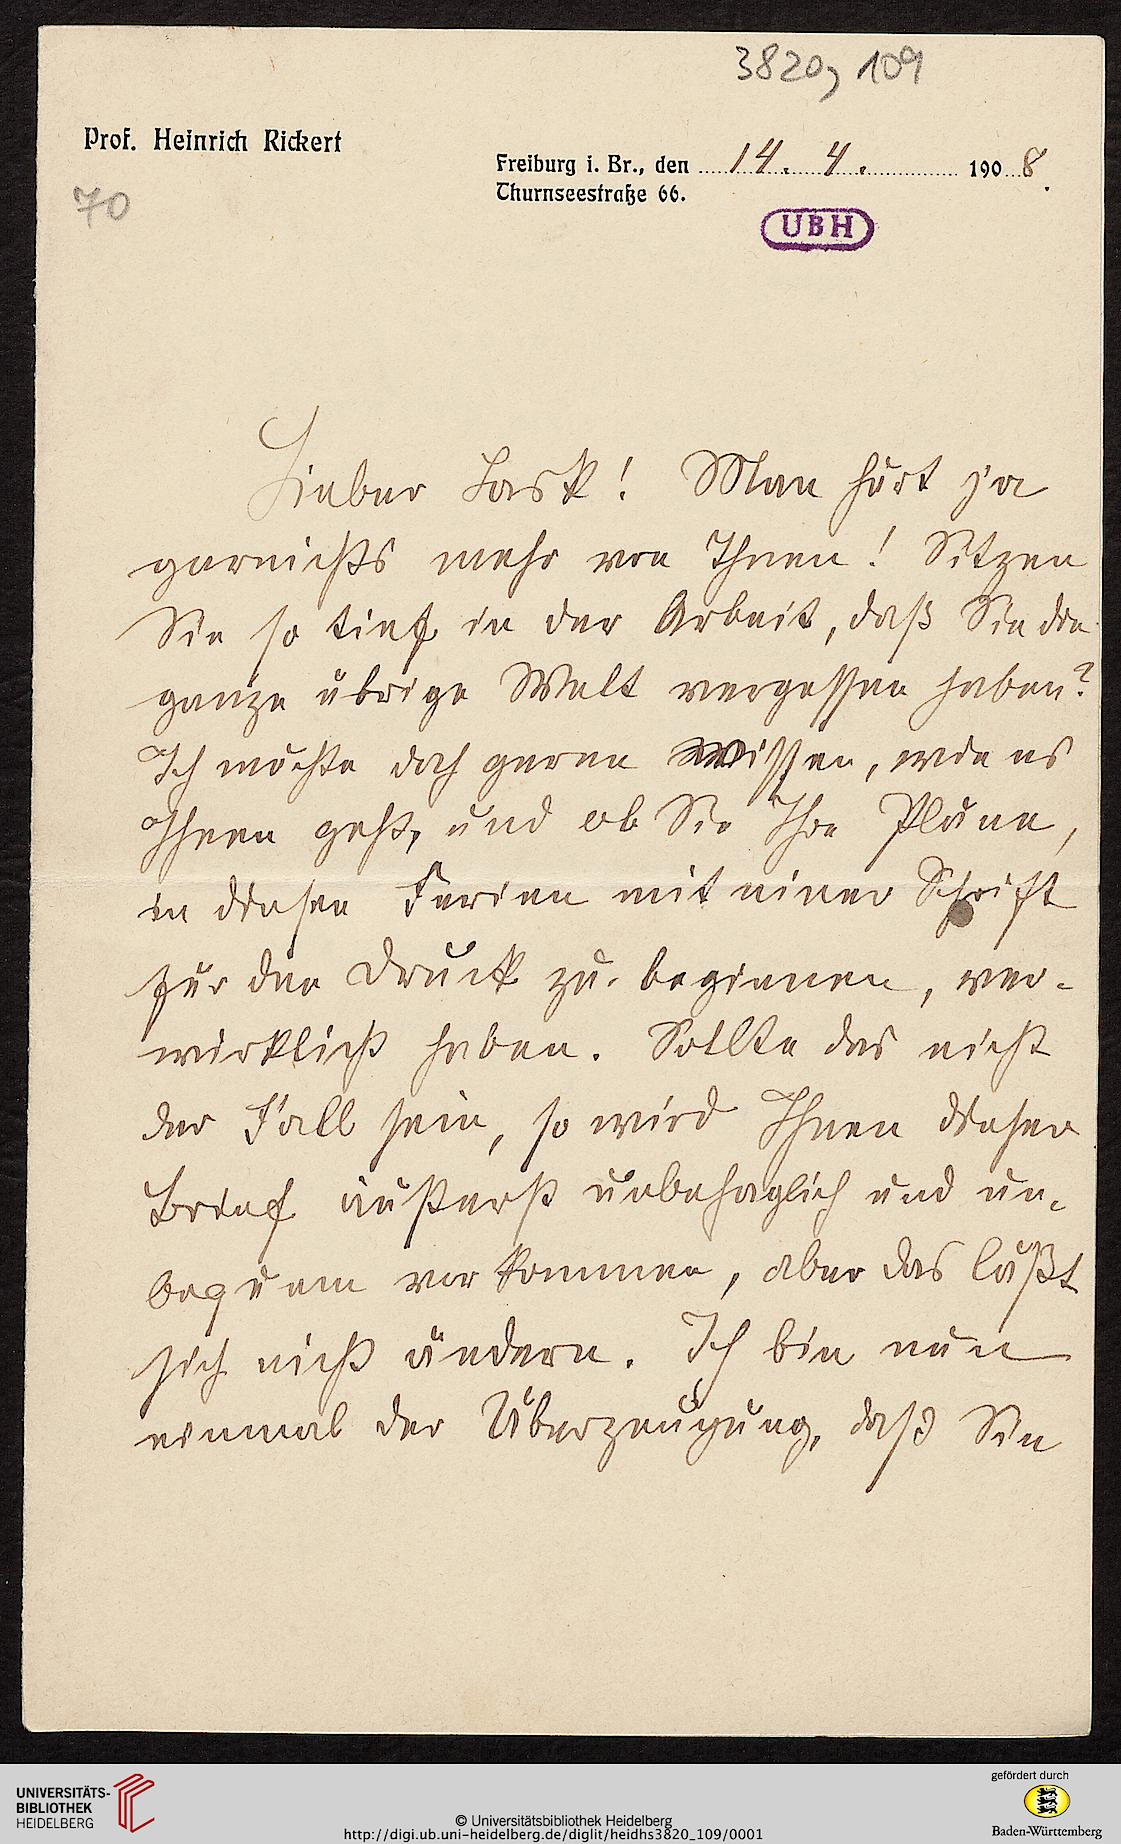 3820, 109
Prof. Heinrich Rickert
Freiburg i. Br., den 14. 4. 1908.
Thurnseestraße 66.
70
UBH
Lieber Lask! Man hört ja
garnichts mehr von Ihnen! Sitzen
Sie so tief in der Arbeit, daß Sie die
ganze übrige Welt vergessen haben?
Ich möchte doch gerne wissen, wie es
Ihnen geht, und ob Sie Ihre Pläne,
in diesen Ferien mit einer Schrift
für den Druck zu beginnen, ver-
wirklicht haben. Sollte das nicht
der Fall sein, so wird Ihnen dieser
Brief äußerst unbehaglich und un-
bequem vorkommen, aber das läßt
sich nicht ändern. Ich bin nun
einmal der Überzeugung, daß Sie
UNIVERSITÄTS-
BIBLIOTHEK
HEIDELBERG
© Universitätsbibliothek Heidelberg
http://digi.ub.uni-heidelberg.de/diglit/heidhs3820_109/0001
gefördert durch
Baden-Württemberg